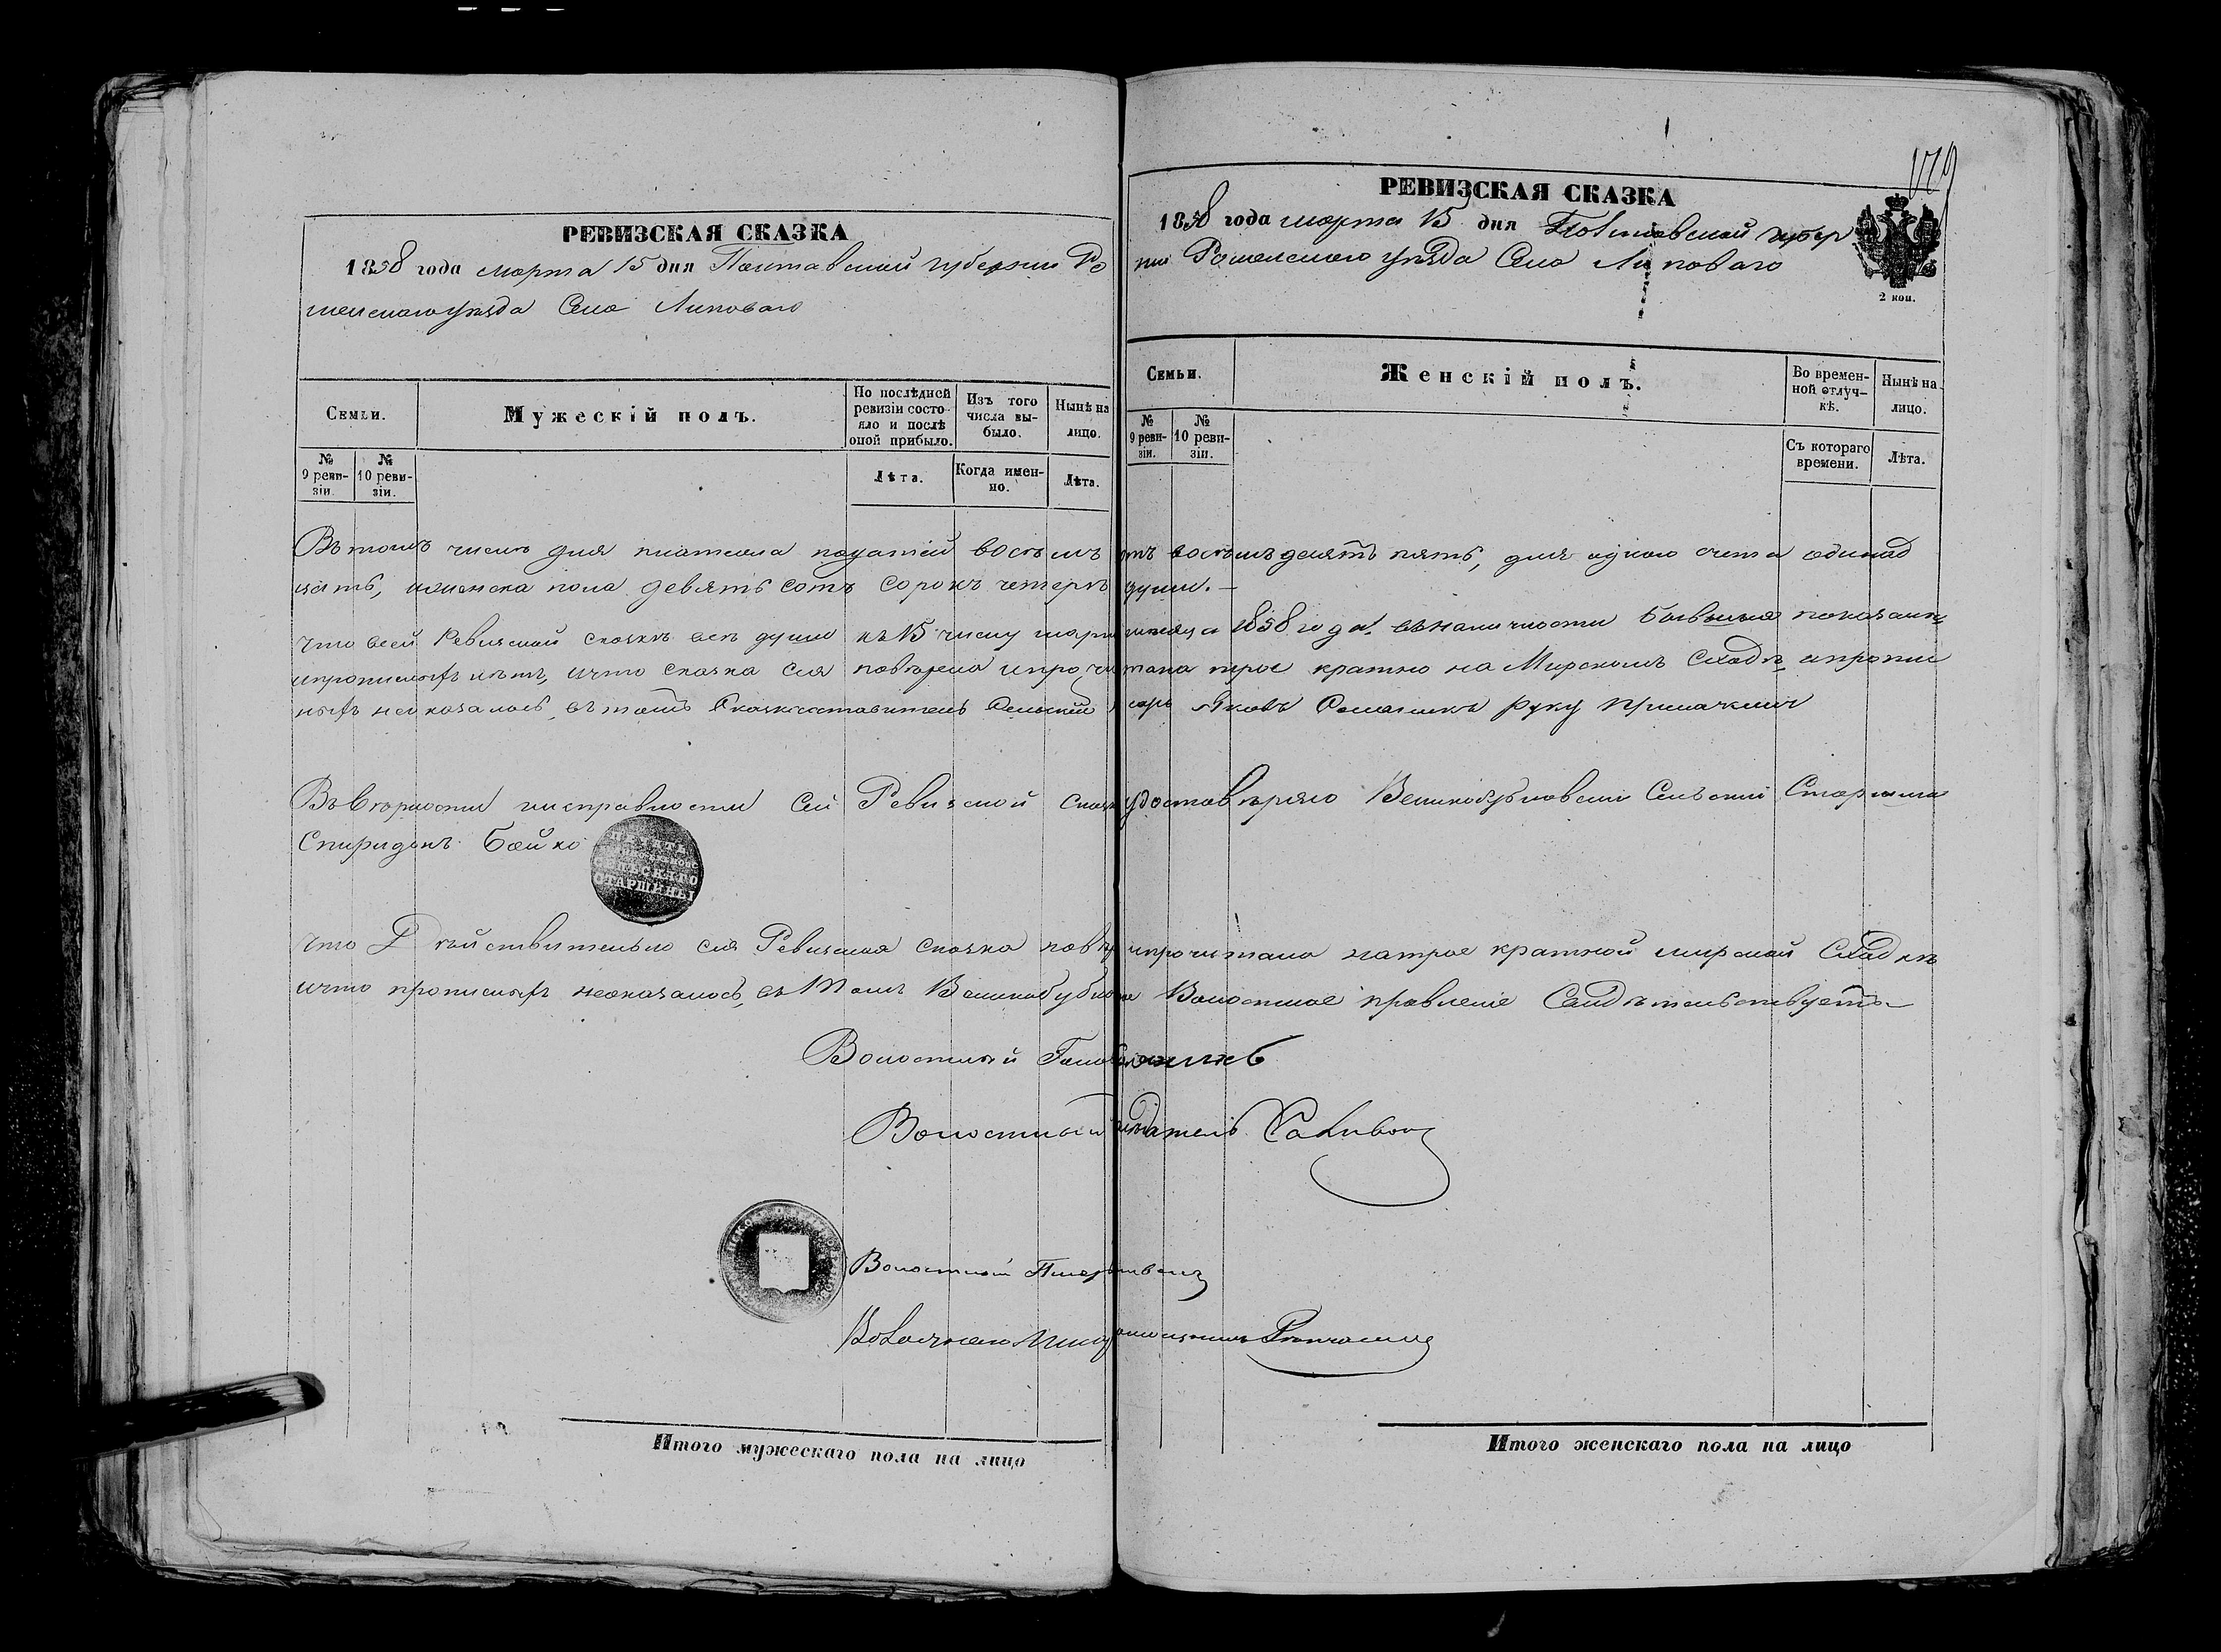 РЕВИЗСКАЯ СКАЗКА
1858 года марта 15 дня Полтавской губернии Ро
менского уѣзда Села Липоваго
Семьи.
Мужескій полъ.
По послѣдней ревизіи состояло и послѣ оной прибыло.
Изъ того числа выбыло.
Нынѣ на лицо.
№ 9 ревизіи.
№ 10 ревизіи.
Лѣта.
Когда именно.
Лѣта.
179
РЕВИЗСКАЯ СКАЗКА
1858 года марта 15 дня Полтавской губер
ніи Роменского уѣзда Села Липоваго
2 коп.
Семьи.
Женскій полъ.
Во временной отлучкѣ.
Нынѣ на лицо.
№ 9 ревизіи.
№ 10 ревизіи.
Съ котораго времени.
Лѣта.
Въ томъ числѣ для платежа податей восемъ сотъ восемъдесятъ пять, для одного счета одинад
цать, женска пола девятьсотъ сорокъ четыре души.
Что всей Ревизской сказкѣ всѣ души къ 15 числу марта мѣсяца 1858 года въ наличности бывшия показаны
и прописныхъ нѣтъ, и что сказка сия повѣрена и прочитана трое кратно на Мирскомъ Сходѣ и пропис
ныхъ неоказалось, въ томъ Сказкосоставитель Сельскій Писарь Яковъ руку приложилъ
Въ вѣрности и исправности сей Ревизской сказки удостовѣряю Великобубновский Сельский Старшина
Спиридонъ Бойко
ПЕЧАТЬ
СЕЛЬСКАГО
СТАРШИНЫ
Что Дѣйствительно сия Ревизская сказка повѣ и прочитана на трое кратной мирской Сходкѣ
и что прописныхъ неоказалось, въ томъ Великобубновское Волостное правленіе Свидѣтельствуетъ
Волостный Голова
Волостный Засѣдатель
Волостной Писарь
Итого мужескаго пола на лицо
Итого женскаго пола на лицо